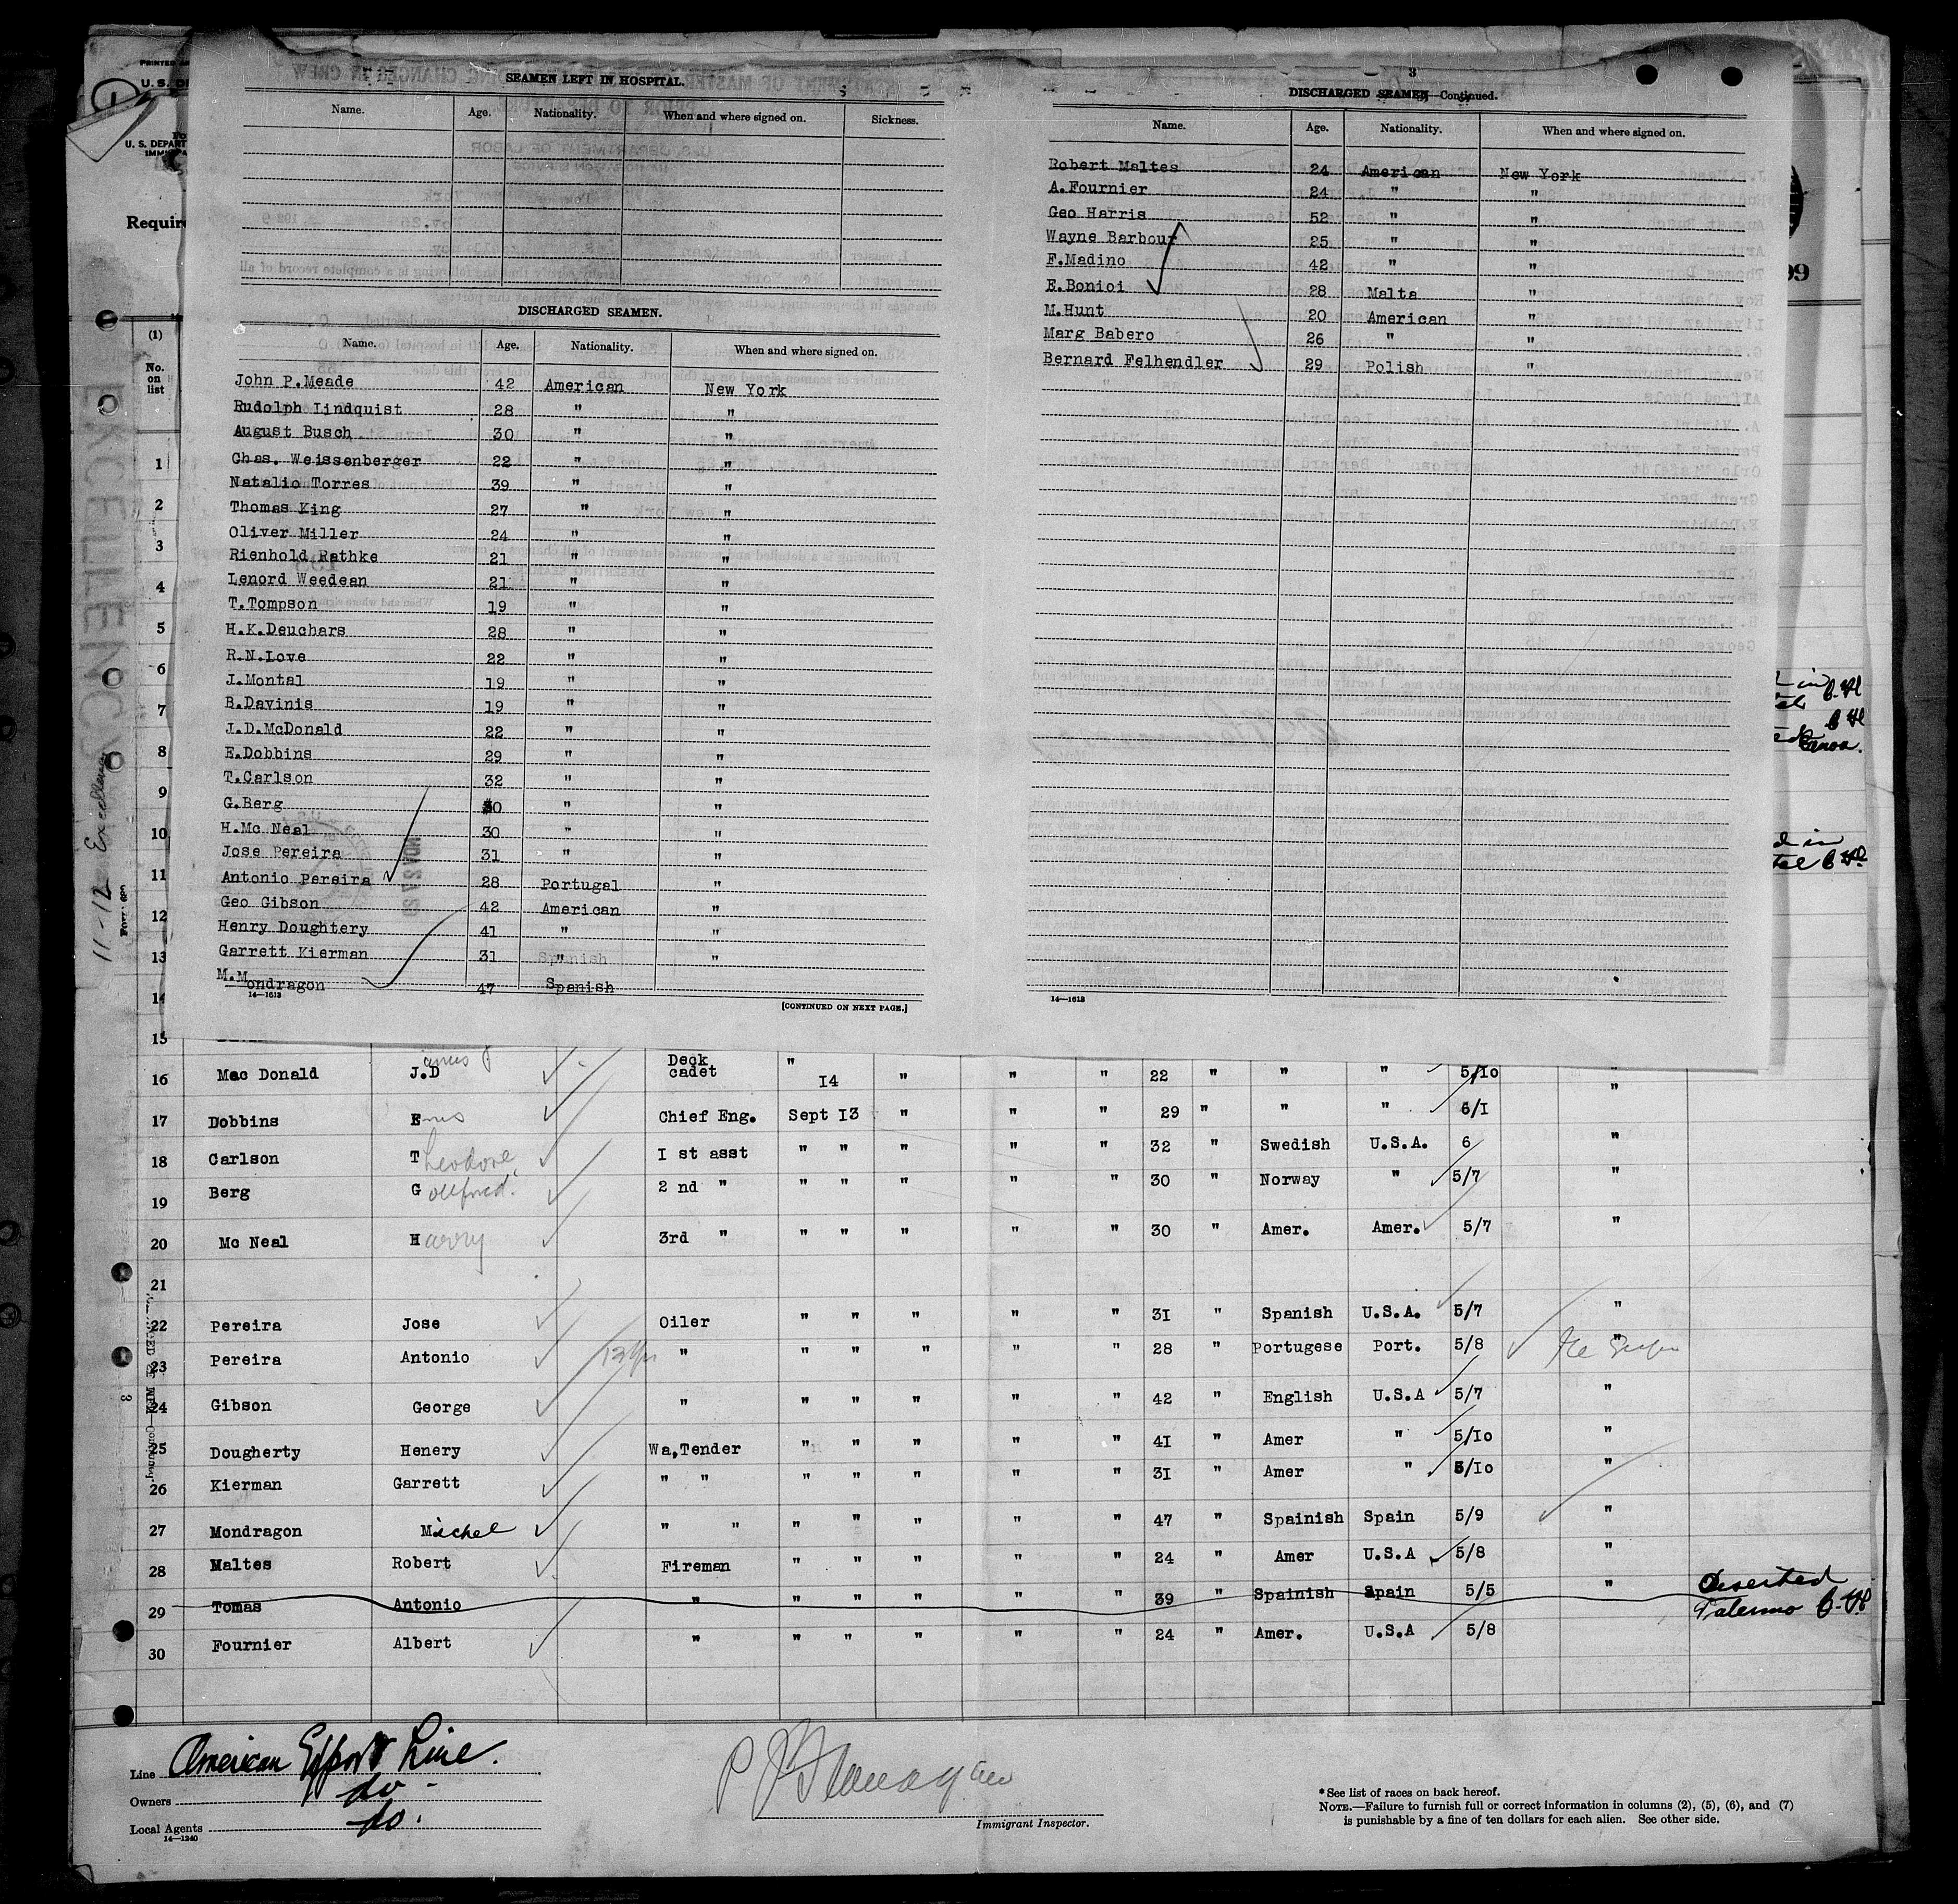 SEAMEN LEFT IN HOSPITAL.
Name. Age. Nationality. When and where signed on. Sickness.
DISCHARGED SEAMEN.
Name. Age. Nationality. When and where signed on.
John P.Meade 42 American New York
Rudolph Lindquist 28 " "
August Busch 30 " "
Chas. Weissenberger 22 " "
Natalio Torres 39 " "
Thomas King 27 " "
Oliver Miller 24 " "
Rienhold Rathke 21 " "
Lenord Weedean 21 " "
T.Tompson 19 " "
H.K.Deuchars 28 " "
R.N.Love 22 " "
J.Montal 19 " "
B.Davinis 19 " "
J.D.McDonald 22 " "
E.Dobbins 29 " "
T.Carlson 32 " "
G.Berg 30 " "
H.Mc Neal 30 " "
Jose Pereira 31 " "
Antonio Pereira 28 Portugal "
Geo Gibson 42 American "
Henry Doughtery 41 " "
Garrett Kierman 31 " "
M.Mondragon 47 Spanish
14—1613
[CONTINUED ON NEXT PAGE.]
3
DISCHARGED SEAMEN—Continued.
Name. Age. Nationality. When and where signed on.
Robert Maltes 24 American New York
A.Fournier 24 " "
Geo Harris 52 " "
Wayne Barbour 25 " "
F.Madino 42 " "
E.Bonioi 28 Malta "
M.Hunt 20 American "
Marg Babero 26 " "
Bernard Felhendler 29 Polish "
14—1613
U. S. DEPART
Require
(1)
No. on list
1
2
3
4
5
6
7
8
9
10
11
12
13
14
15
11-12 Excellency
16 Mac Donald J.D Deck cadet " 14 " " " 22 " " " 5/10 "
17 Dobbins E Chief Eng. Sept 13 " " " 29 " " " 6/1
18 Carlson Theodore I st asst " " " " " 32 " Swedish U.S.A. 6 "
19 Berg G 2 nd " " " " " " 30 " Norway " 5/7 "
20 Mc Neal Harry 3rd " " " " " " 30 " Amer. Amer. 5/7 "
21
22 Pereira Jose Oiler " " " " " 31 " Spanish U.S.A. 5/7 "
23 Pereira Antonio " " " " " " 28 " Portugese Port. 5/8 "
24 Gibson George " " " " " " 42 " English U.S.A 5/7 "
25 Dougherty Henery Wa,Tender " " " " " 41 " Amer " 5/10 "
26 Kierman Garrett " " " " " " " 31 " Amer " 5/10 "
27 Mondragon Michel " " " " " " " 47 " Spainish Spain 5/9 "
28 Maltes Robert Fireman " " " " " 24 " Amer U.S.A 5/8 "
29 Tomas Antonio " " " " " " 39 " Spainish Spain 5/5 " Deserted Palermo
30 Fournier Albert " " " " " " 24 " Amer. U.S.A 5/8
Line American Export Line.
Owners do -
Local Agents do.
14—1240
P J Flanagan
Immigrant Inspector.
* See list of races on back hereof.
NOTE.—Failure to furnish full or correct information in columns (2), (5), (6), and (7)
is punishable by a fine of ten dollars for each alien. See other side.